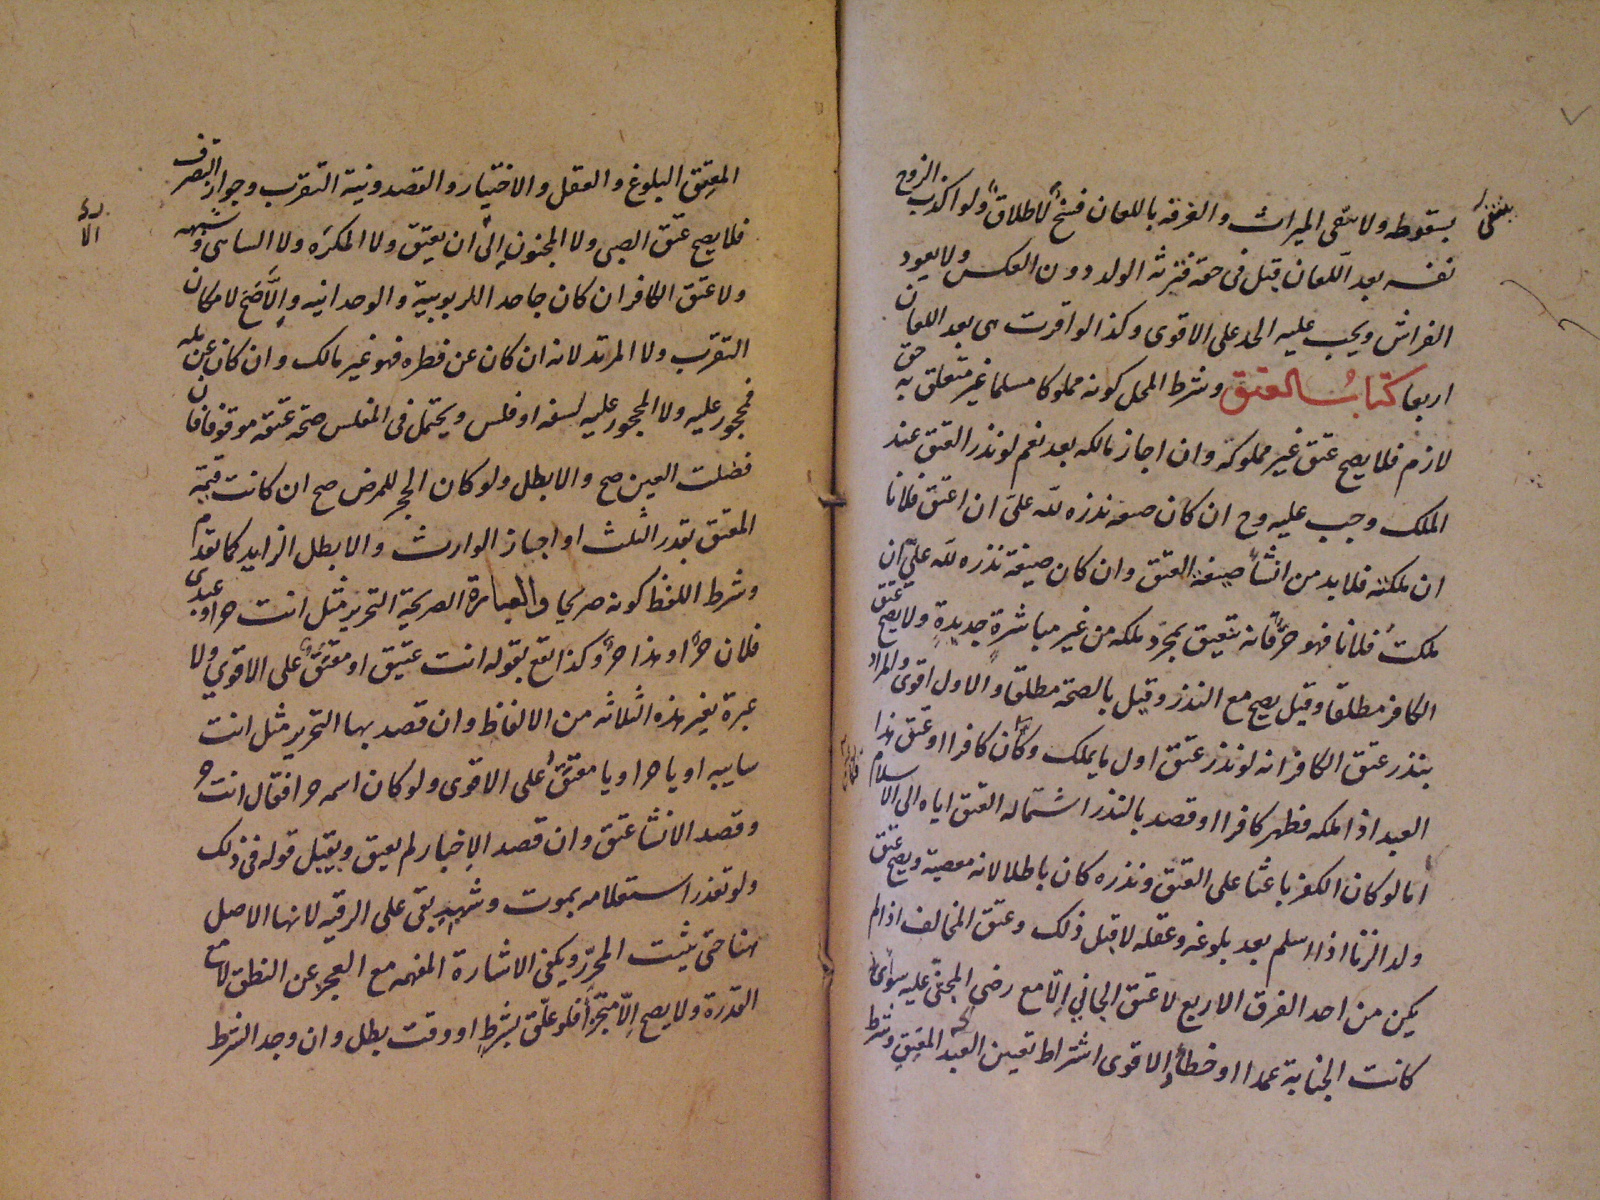 بسقوطه ولا ينتفى الميراث والفرقة باللعان فسخ لا طلاق ولو اكذب الزوج
نفسه بعد اللعان قبل فى حقه فترثه الولد دون العكس ولا يعود
الفراش ويجب عليه الحد على الاقوى وكذا لو اقرت هى بعد اللعان
اربعا كتاب العتق وشرط المحل كونه مملوكا مسلما غير متعلق به حق
لازم فلا يصح عتق غير مملوكه وان اجاز مالكه بعد نعم لو نذر العتق عند
الملك وجب عليه وح ان كان صيغة نذره لله على ان اعتق فلانا
ان ملكته فلا بد من انشاء صيغة العتق وان كان صيغة نذره لله على ان
ملكت فلانا فهو حر فانه يتعتق بمجرد ملكه من غير مباشرة جديدة ولا يصح عتق
الكافر مطلقا وقيل يصح مع النذر وقيل بالصحة مطلقا والاول اقوى والمراد
بنذر عتق الكافر انه لو نذر عتق اول ما يملك وكان كافرا او عتق هذا
العبد اذا ملكه فظهر كافرا او قصد بالنذر استماله العتق اياه الى الاسلام
اما لو كان الكفر باعثا على العتق ونذره كان باطلا لانه معصية ويصح عتق
ولد الزنا اذا اسلم بعد بلوغه وعقله لا قبل ذلك وعتق المخالف اذا لم
يكن من احد الفرق الاربع لا عتق الجاني إلا مع رضى المجنى عليه سواء
كانت الجناية عمدا او خطأ والاقوى اشتراط تعيين العبد المعتق وشرط
المعتق البلوغ والعقل والاختيار والقصد ونية التقرب وجواز التصرف
فلا يصح عتق الصبى ولا المجنون إلى ان يعتق ولا المكره ولا الساهى وشبهه
ولا عتق الكافر ان كان جاحدا للربوبية والوحدانيه وإلا صح لامكان
التقرب ولا المرتد لانه ان كان عن فطره فهو غير مالك وان كان عن مله
فمحجور عليه ولا المحجور عليه لسفه او فلس ويحتمل فى المفلس صحة عتقه موقوفا فان
فضلت العين صح والا بطل ولو كان الحجر للمرض صح ان كانت قيمة
المعتق بقدر الثلث او اجاز الوارث والا بطل الزايد كما تقدم
وشرط اللفظ كونه صريحا والعبارة الصريحة التحرير مثل انت حر او عبدى
فلان حر او هذا حر وكذا تقع بقوله انت عتيق او معتق على الاقوى ولا
عبرة بغير هذه الثلاثه من الالفاظ وان قصد بها التحرير مثل انت
سايبه او يا حر او يا معتق على الاقوى ولو كان اسمه حرا فقال انت حر
وقصد الانشا عتق وان قصد الإخبار لم يعتق ويقبل قوله فى ذلك
ولو تعذر استعلامه بموت وشبهه بقى على الرقيه لانها الاصل
هنا حتى يثبت المحرر ويكفى الاشارة المفهمه مع العجز عن النطق لا مع
القدرة ولا يصح إلا منجزا فلو علق بشرط او وقت بطل وان وجد الشرط